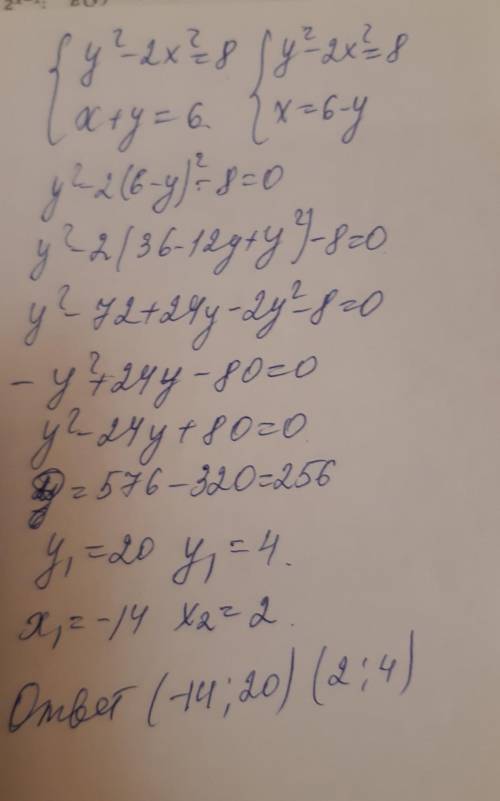 {y²-2x²=8 {y²-2x²=8
x+y=6. x=6-y
y²-2(6-y)²-8=0
y²-2(36-12y+y²)-8=0
y²-72+24y-2y²-8=0
-y²+24y-80=0
y²-24y+80=0
D=576-320=256
y₁=20 y₁=4.
x₁=-14 x₂=2.
Ответ (-14;20) (2;4)